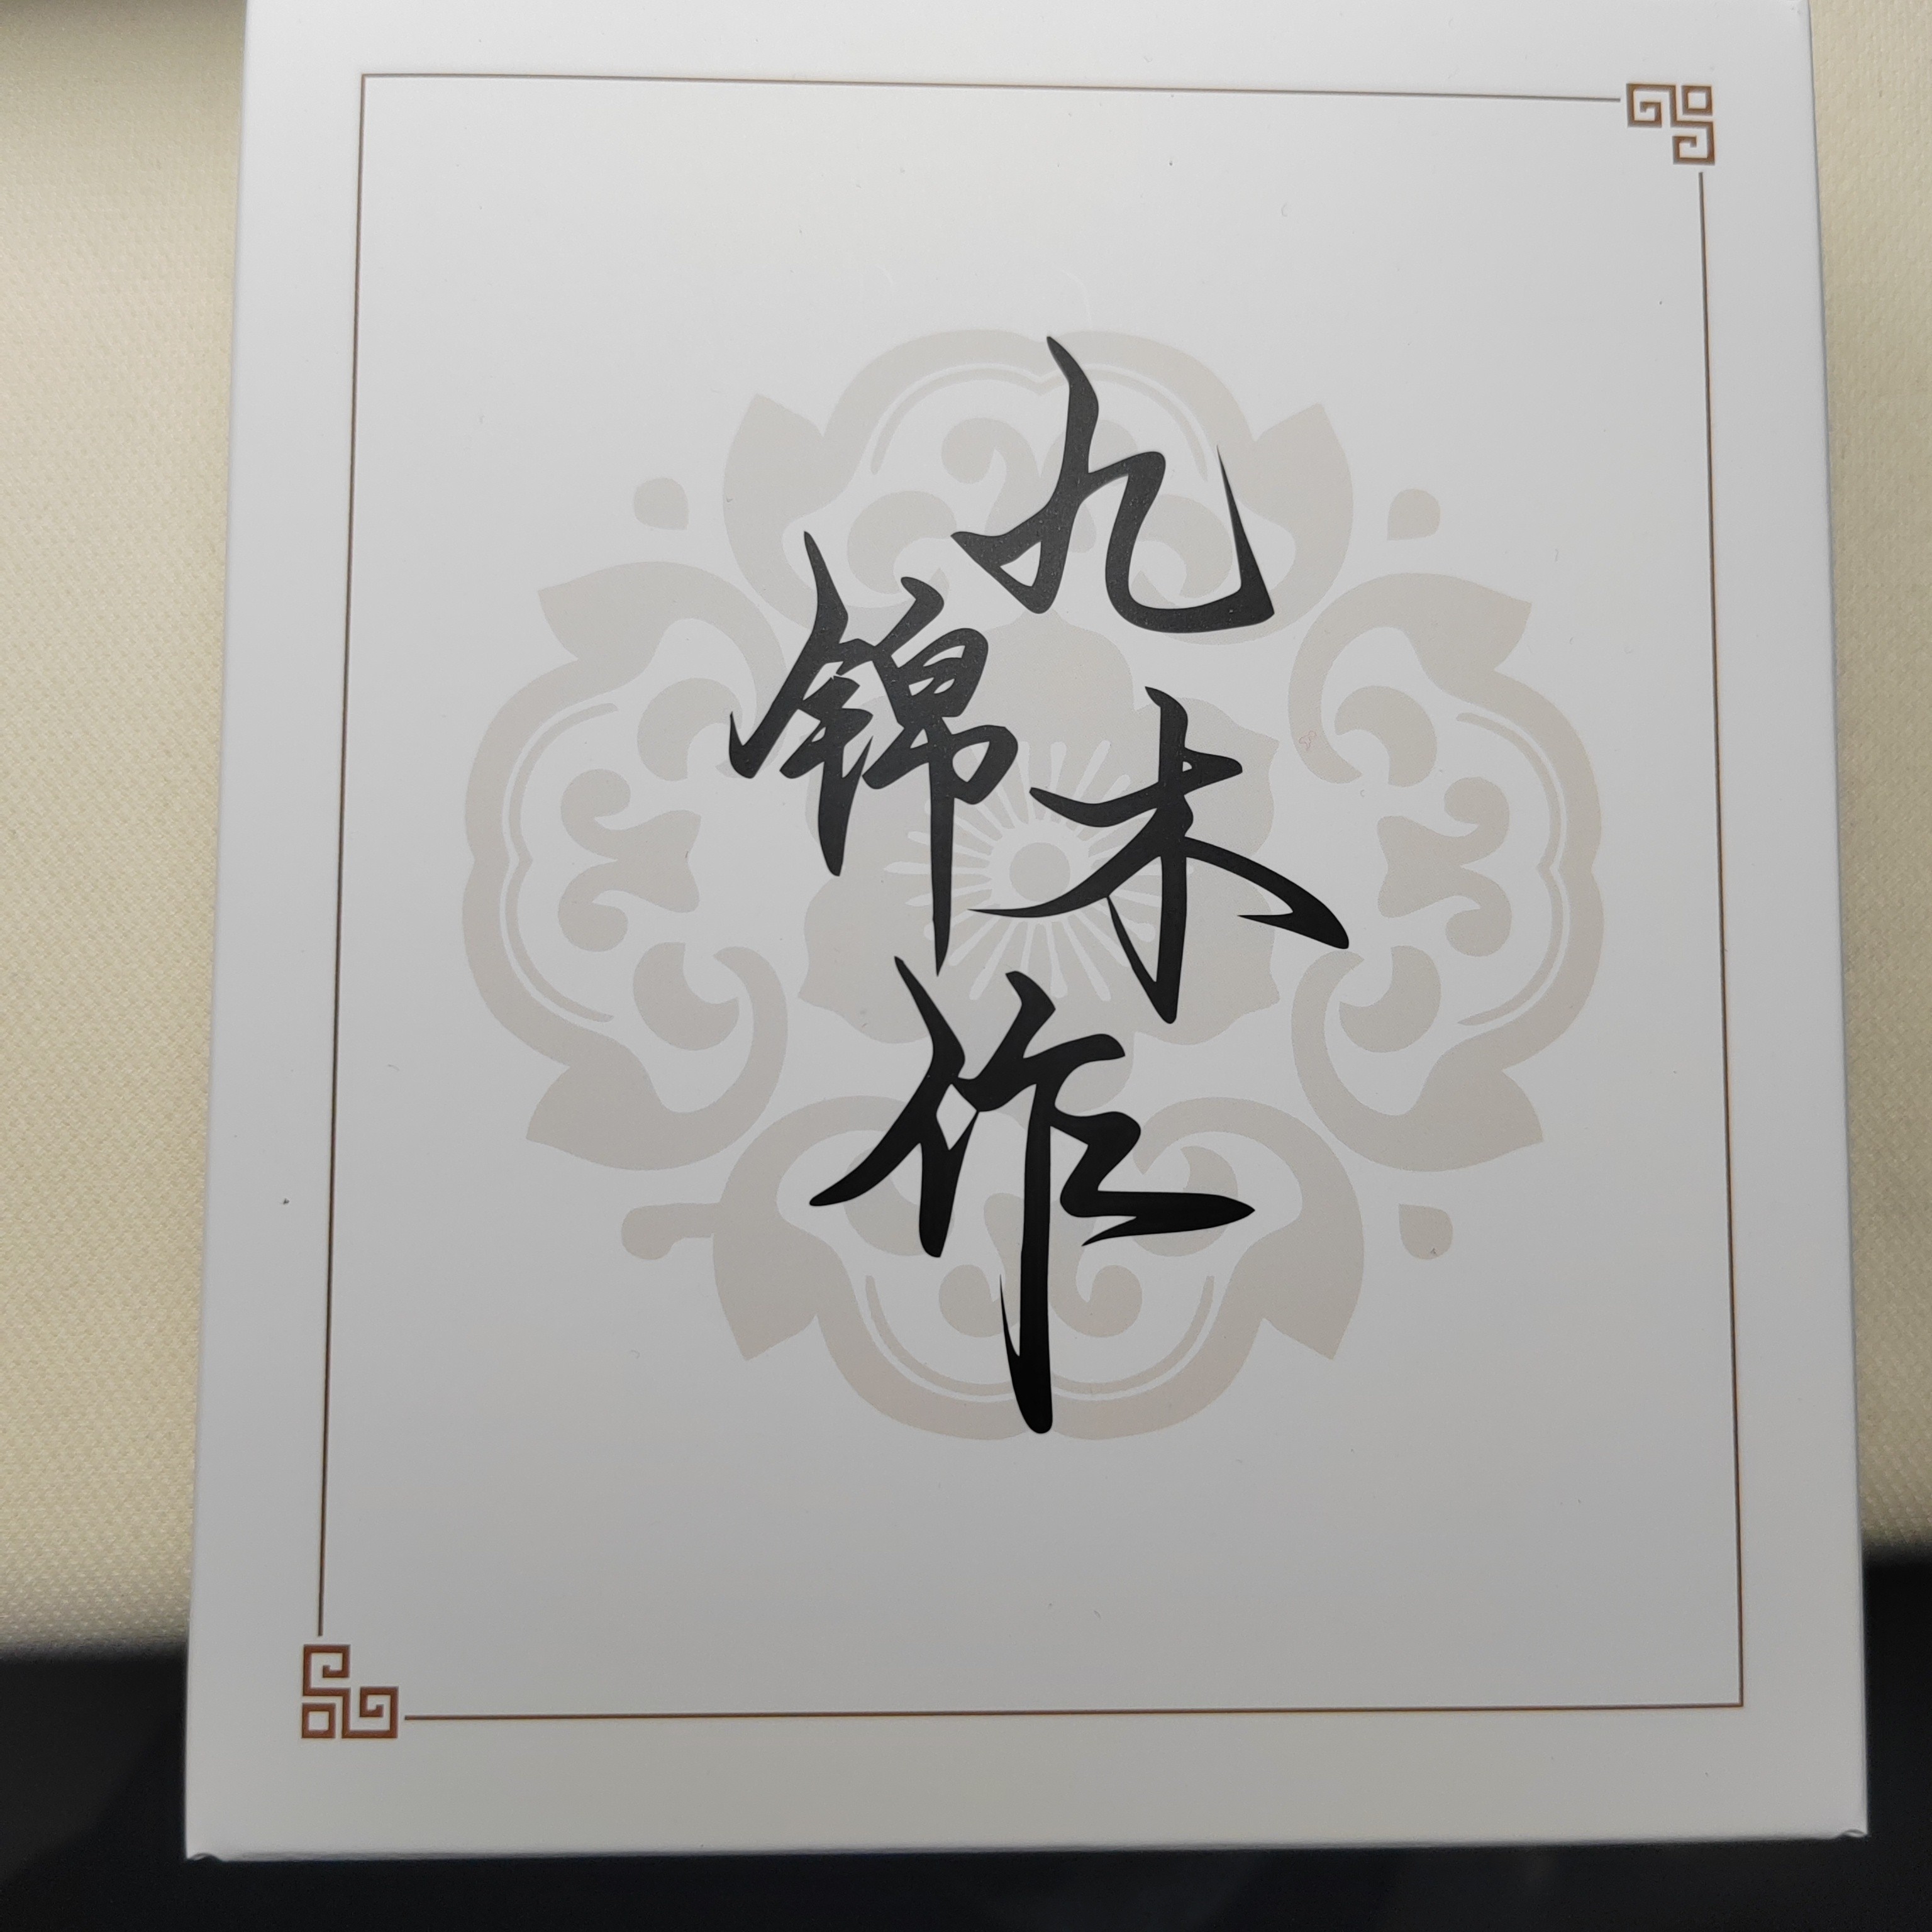 九
锦
木
作